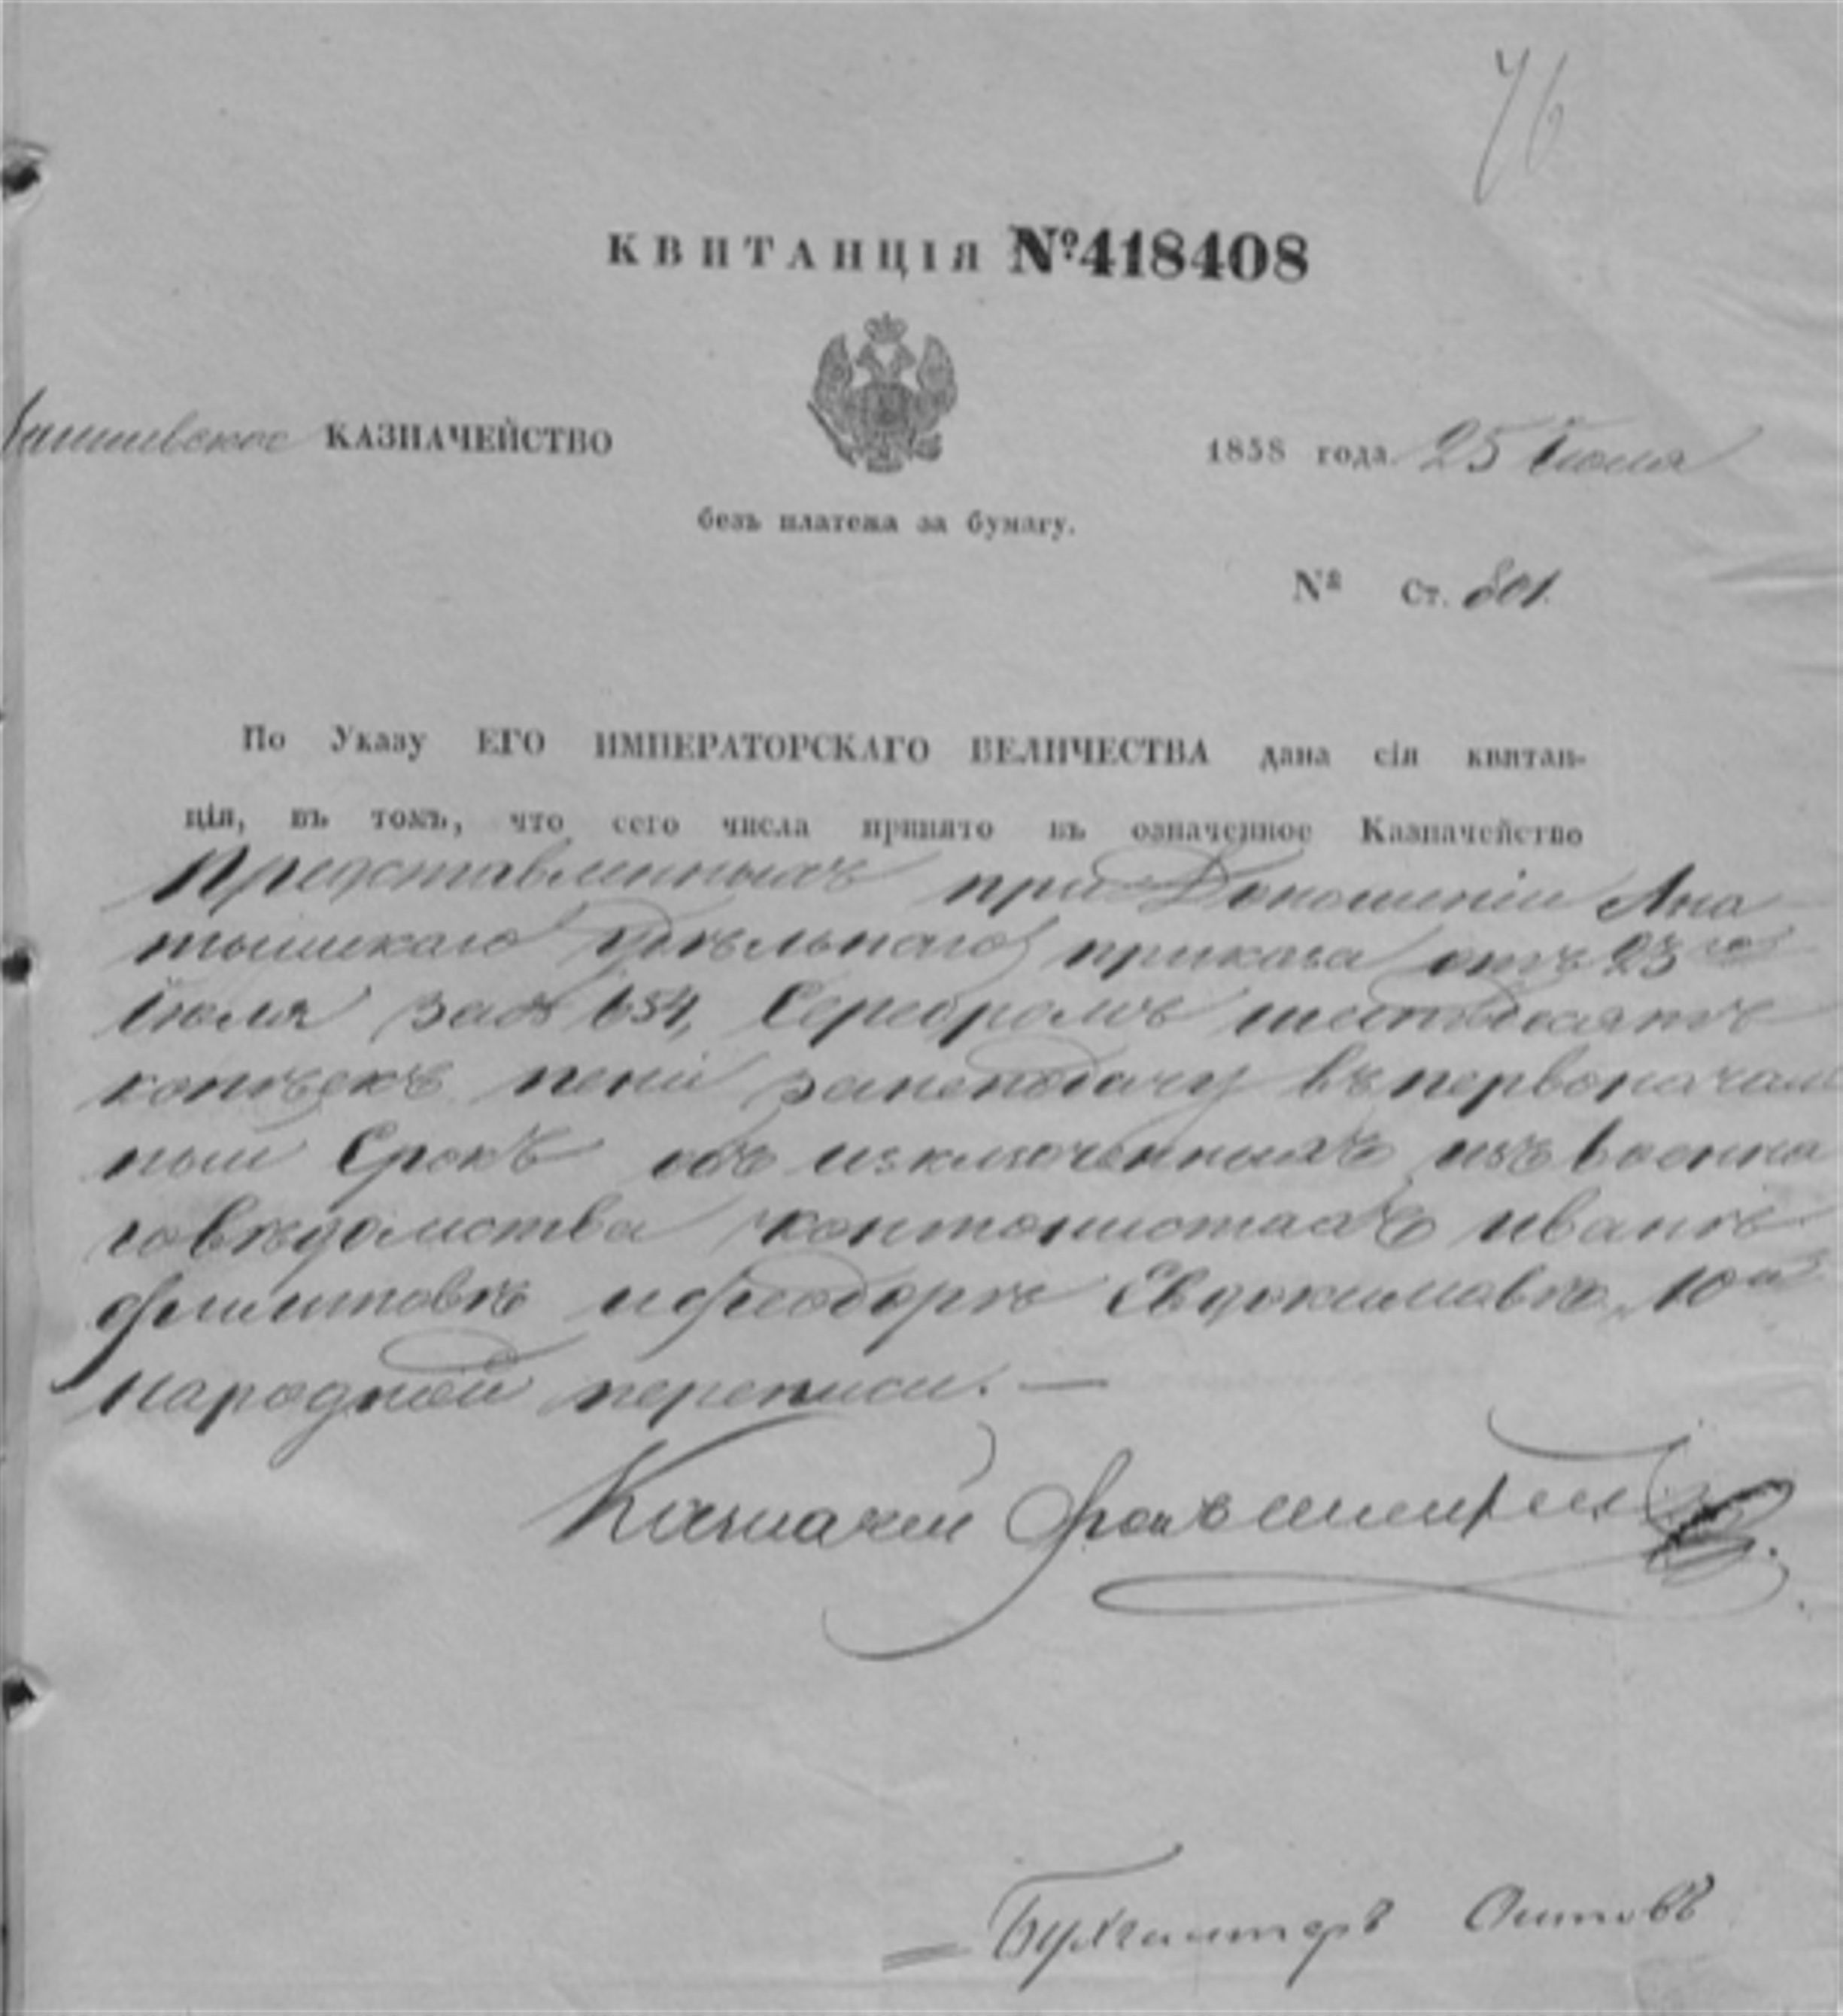 76
КВИТАНЦІЯ №418408
КАЗНАЧЕЙСТВО
1858 года 25 Іюля
безъ платежа за бумагу.
№ Ст. 801.
По Указу ЕГО ИМПЕРАТОРСКАГО ВЕЛИЧЕСТВА дана сія квитан-
ція, въ томъ, что сего числа принято въ означенное Казначейство
Представленныхъ при Доношеніи Ана
тышскаго удѣльнаго приказа отъ 23го
Іюля за № 654, Серебромъ шестьдесятъ
копѣекъ пени занеподачу въ первоначаль
ный Срокъ объ изключенныхъ изъ военна
говѣдомства кантонистахъ иванѣ
Филиповѣ иФеодорѣ Евдокимовѣ, 10й
народной переписи. —
Казначей
Бухгалтеръ Осиповъ